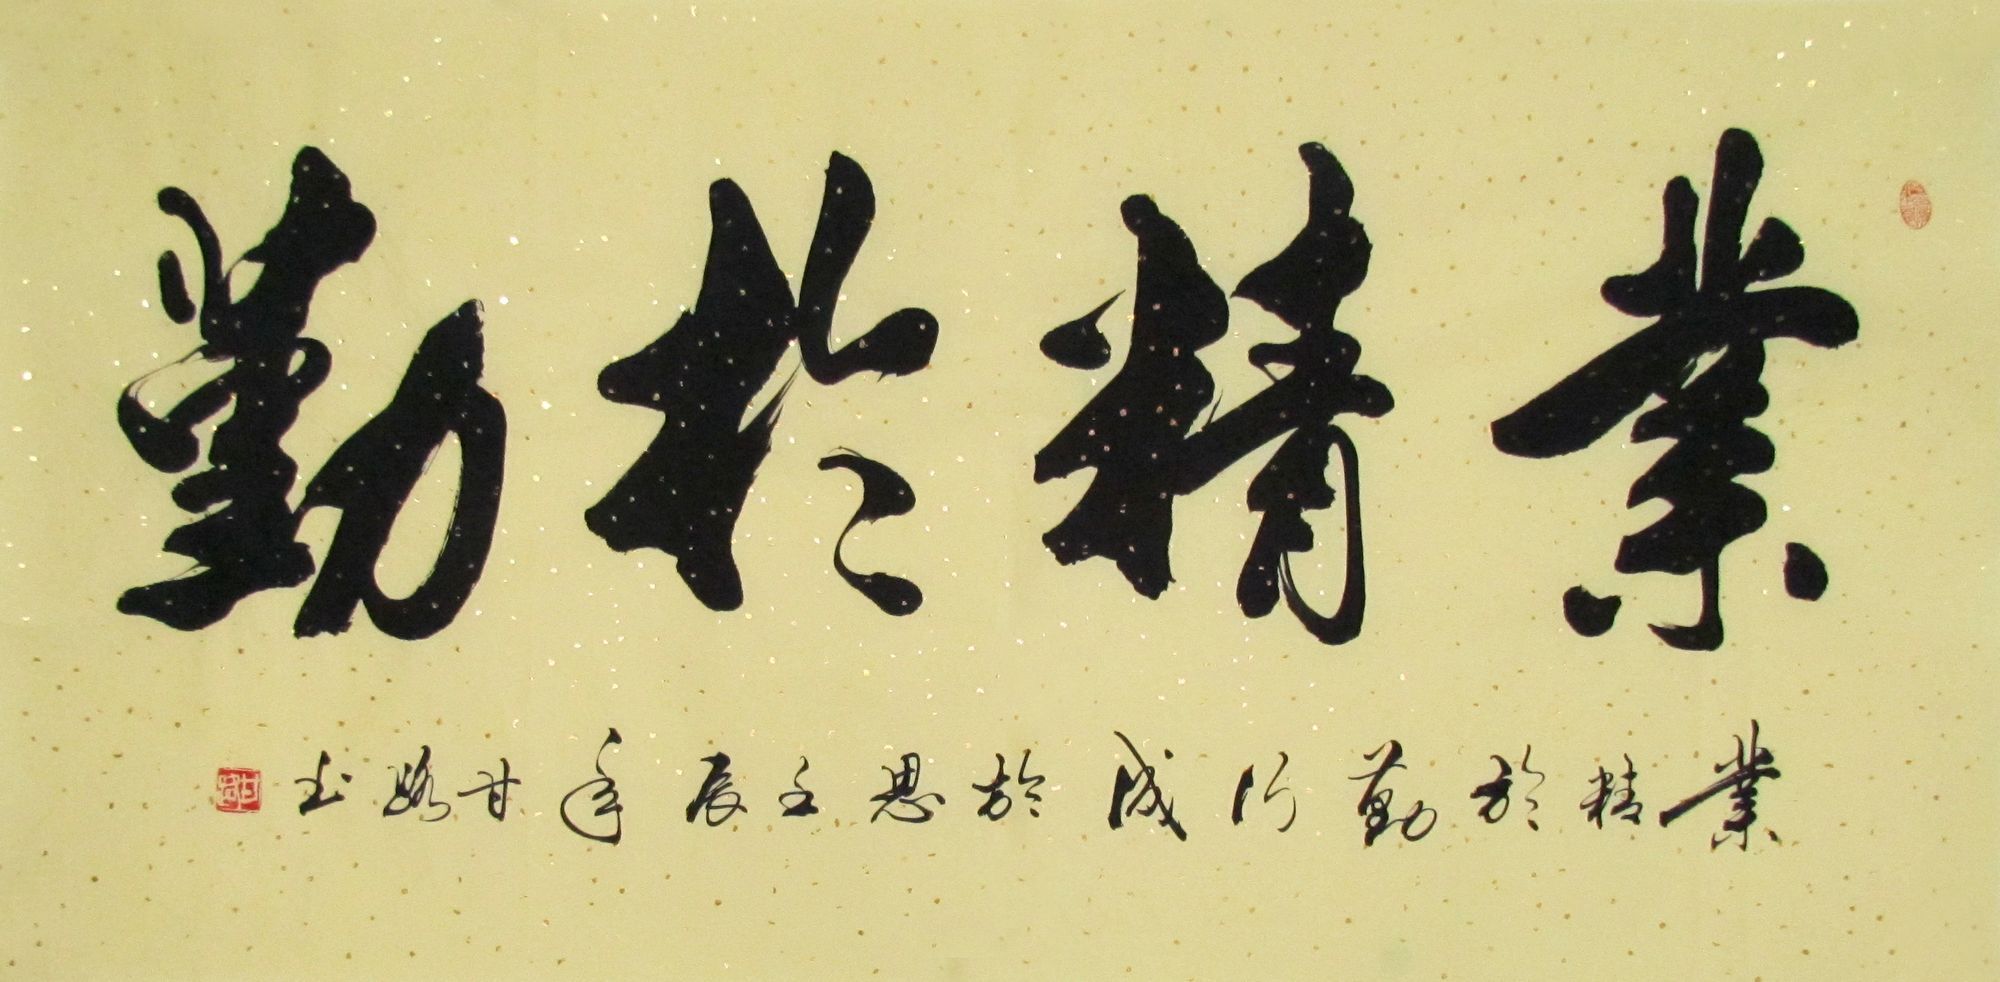 業精於勤
業精於勤行成於思壬辰年甘路书